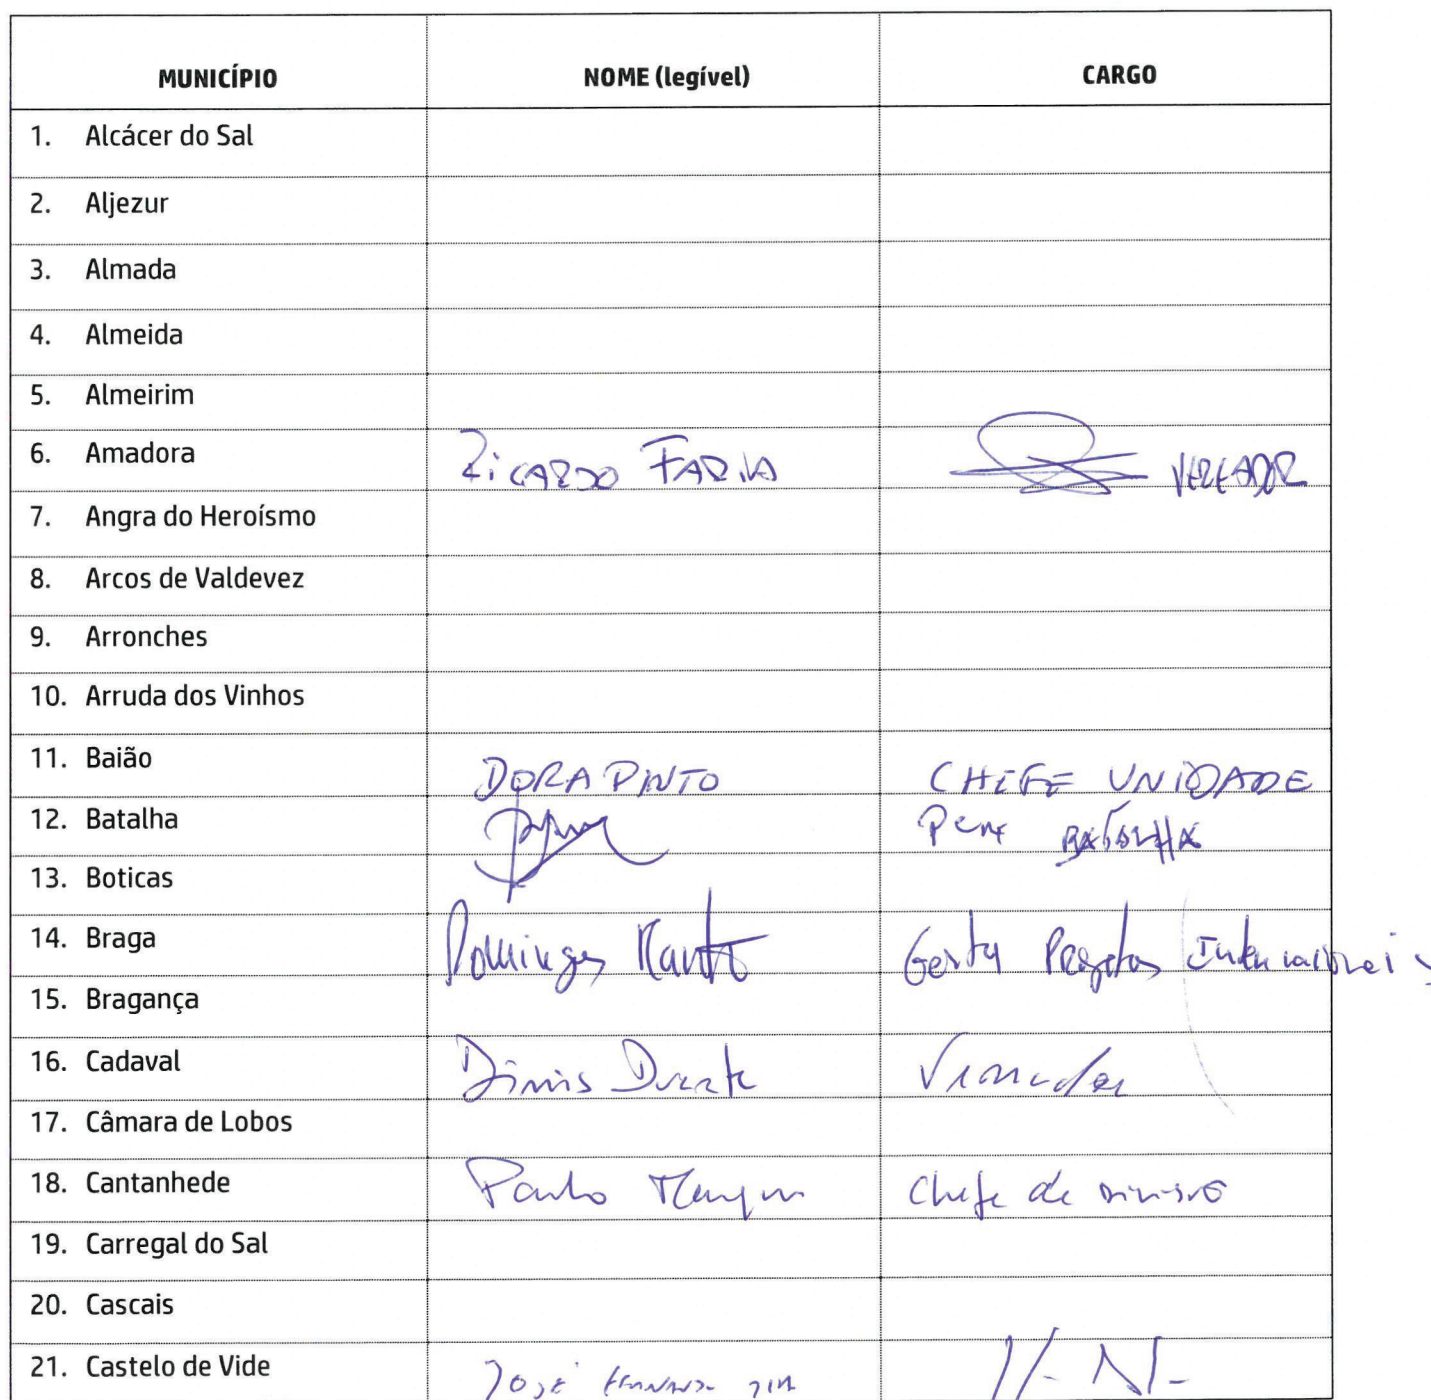 MUNICÍPIO NOME (legível) CARGO
1. Alcácer do Sal
2. Aljezur
3. Almada
4. Almeida
5. Almeirim
6. Amadora RICARDO FARIA VEREADOR
7. Angra do Heroísmo
8. Arcos de Valdevez
9. Arronches
10. Arruda dos Vinhos
11. Baião DORA PINTO CHEFE UNIDADE
12. Batalha
13. Boticas
14. Braga Domingos Internacionais
15. Bragança
16. Cadaval Dinis Duarte Vereador
17. Câmara de Lobos
18. Cantanhede Paulo Chefe de Divisão
19. Carregal do Sal
20. Cascais
21. Castelo de Vide JOSÉ